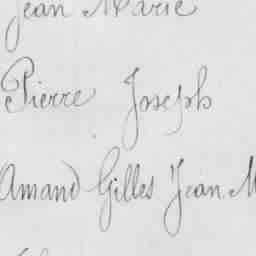 Jean Marie
Pierre Joseph
Amand Gilles Jean M